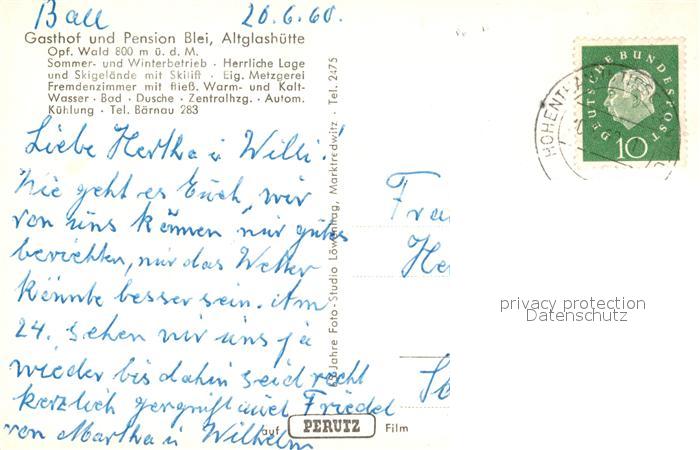 Ball 20.6.60.
Gasthof und Pension Blei, Altglashütte
Opf. Wald 800 m ü. d. M.
Sommer- und Winterbetrieb · Herrliche Lage
und Skigelände mit Skilift · Eig. Metzgerei
Fremdenzimmer mit fließ. Warm- und Kalt-
Wasser · Bad · Dusche · Zentralhzg. · Autom.
Kühlung · Tel. Bärnau 283
Liebe Hertha u Willi!
Wie geht es Euch, wir
von uns können nur gutes
berichten, nur das Wetter
könnte besser sein. Am
24. sehen wir uns ja
wieder bis dahin seid recht
herzlich gegrüßt auch Friedel
von Martha u Wilhelm
Jahre Foto-Studio Löwenhag, Marktredwitz · Tel. 2475
auf PERUTZ Film
DEUTSCHE BUNDESPOST
10
Fra
He
privacy protection
Datenschutz